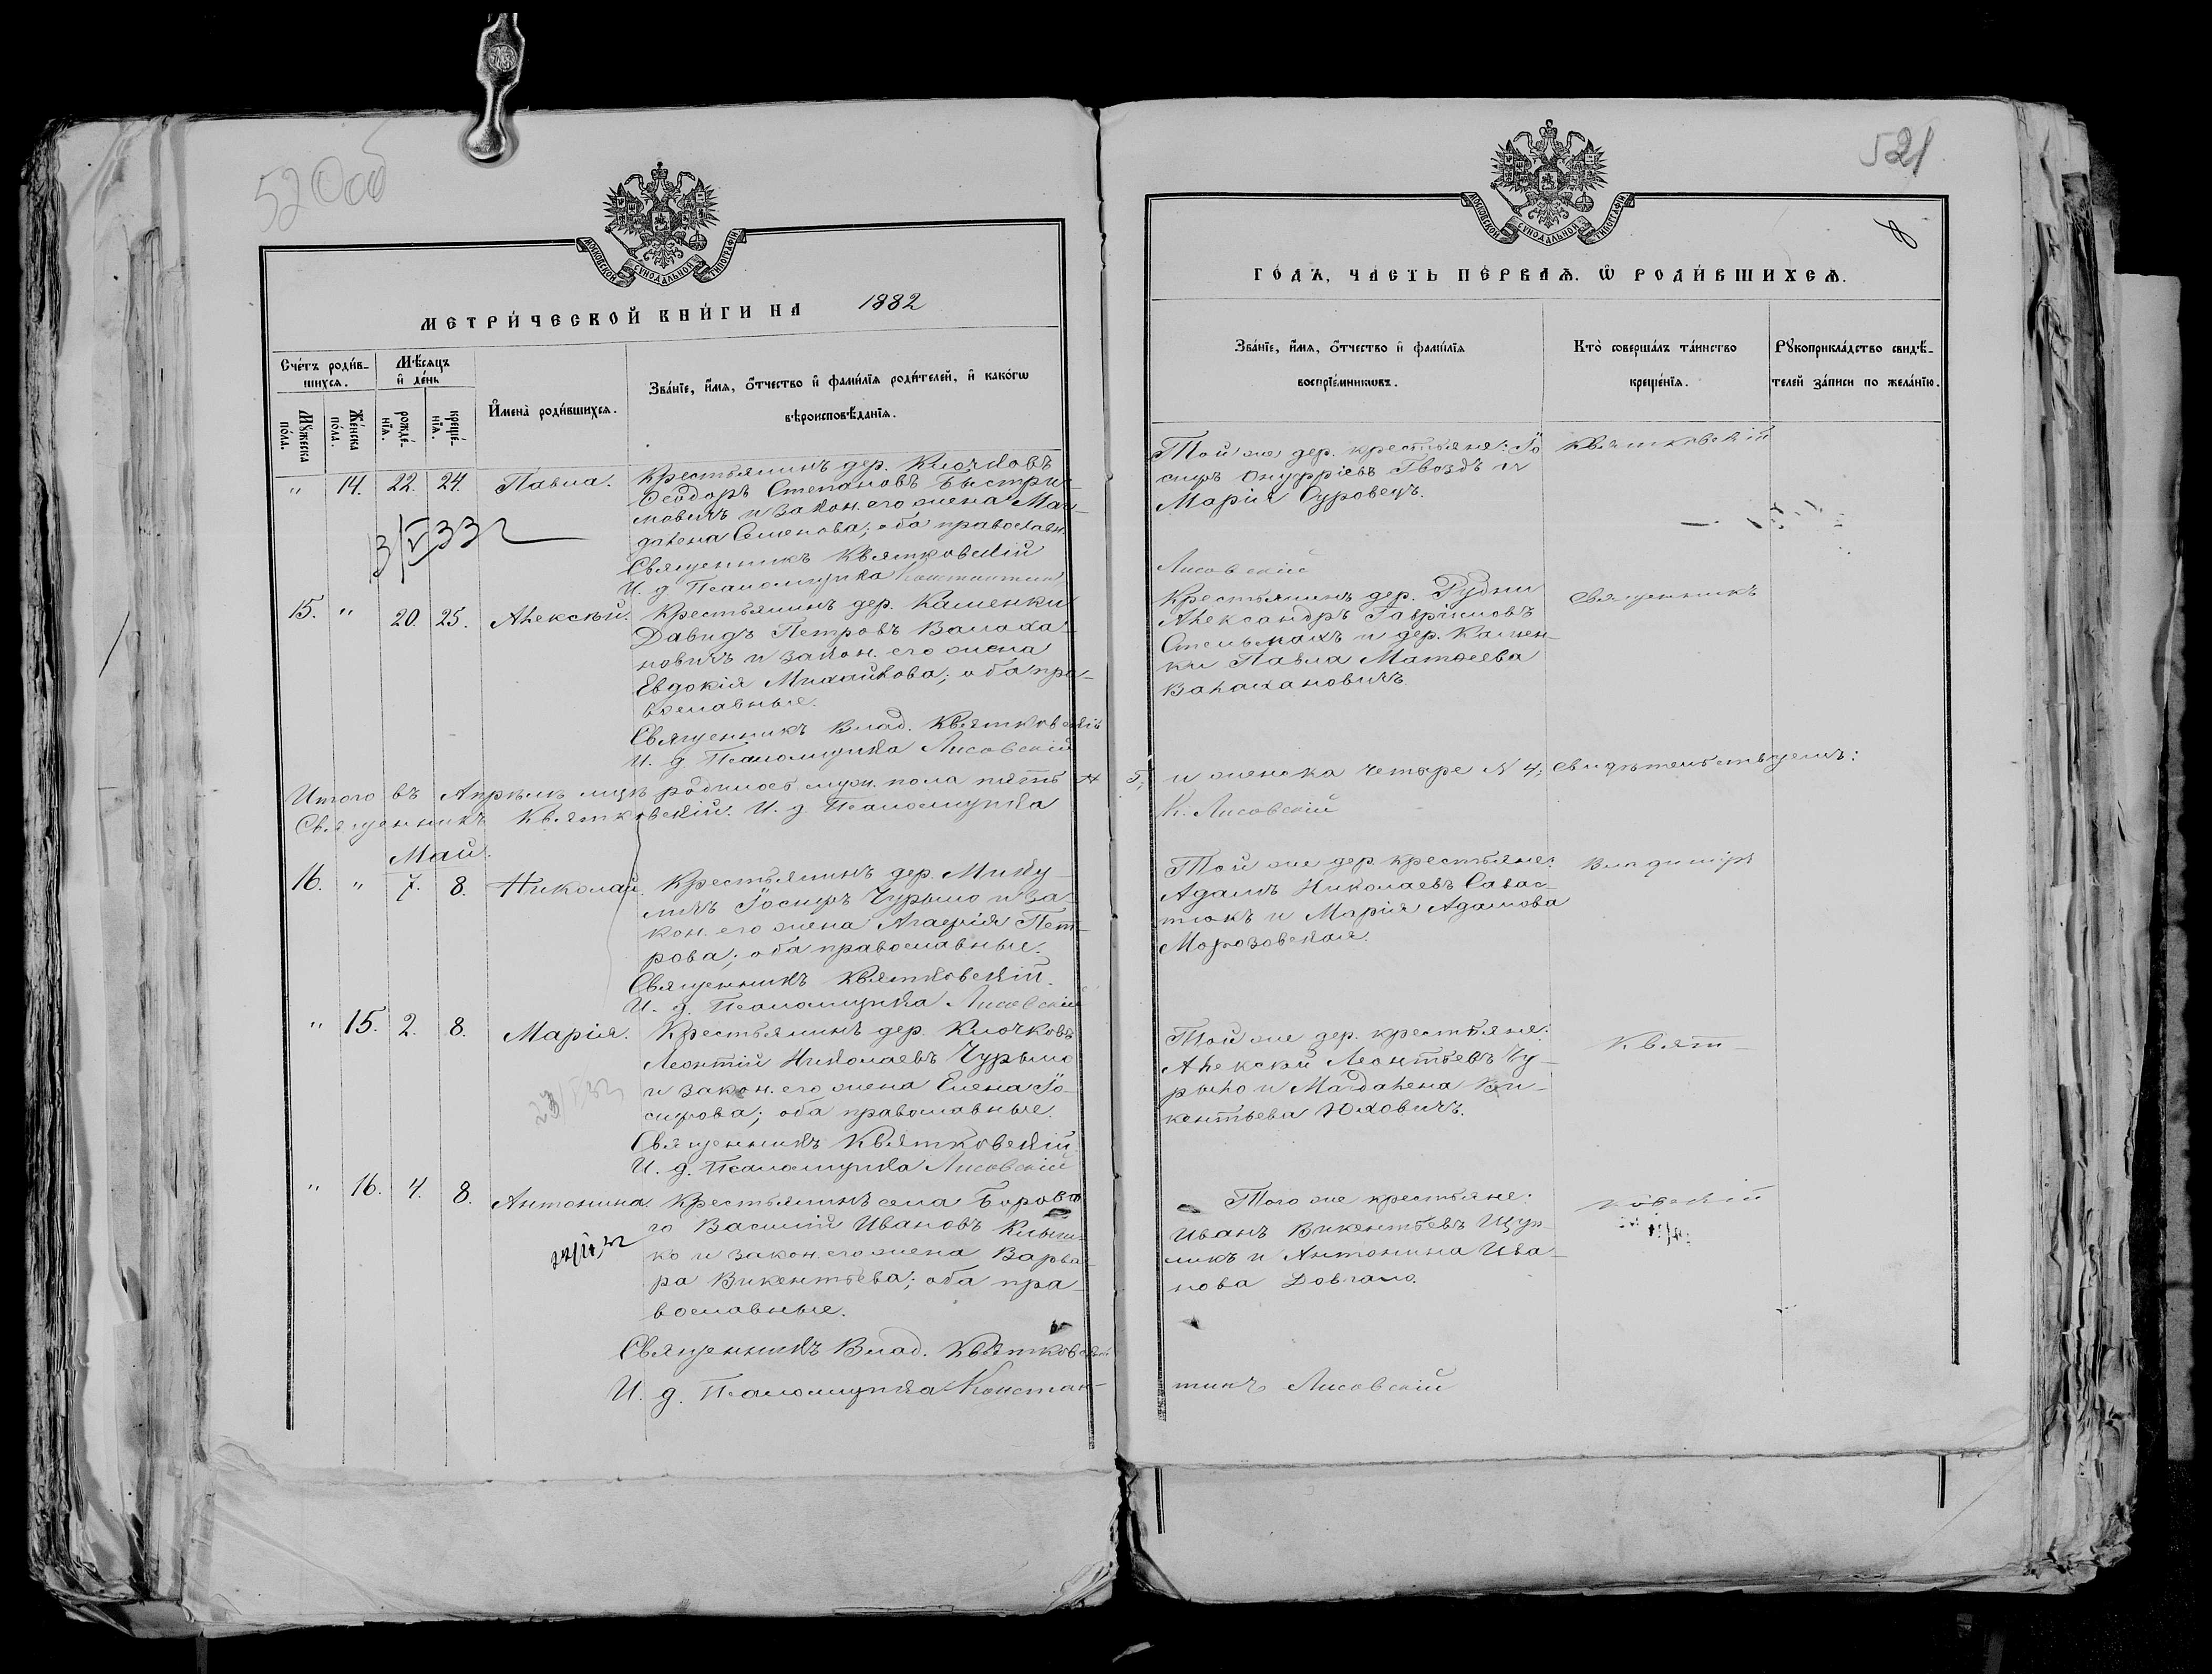 520об
МОСКОВСКОЙ СѴНОДАЛЬНОЙ ТИПОГРАФІИ
МЕТРИ́ЧЕСКОЙ КНИ́ГИ НА 1882
Сче́тъ роди́в-
шихся.
Мѣ́сяцъ
и҆ де́нь
Мꙋ́жеска
по́ла.
Же́нска
по́ла.
рожде́-
нїя.
креще́-
нїя.
И҆мена̀ роди́вшихся.
Зва́нїе, и҆́мя, ѻ҆́тчество и҆ фами́лїя роди́телей, и҆ како́гѡ
вѣроисповѣ́данїя.
" 14. 22. 24. Павла. Крестьянинъ дер. Клочковъ
Ѳеодоръ Степановъ Быстри-
мовичъ и закон. его жена Маг-
далена Семенова; оба православн.
Священникъ Квятковскій
И. д. Псаломщика Константин
3/V 332
15. " 20. 25. Алексѣй. Крестьянинъ дер. Каменки
Давидъ Петровъ Валаха-
новичъ и закон. его жена
Евдокія Михайлова; оба пра-
вославные.
Священникъ Влад. Квятковскій
И. д. Псаломщика Лисовскій
Итого въ Апрѣлѣ мцѣ родилось муж. пола пять N
Священникъ Квятковскій. И. д. Псаломщика
Май.
16. " 7. 8. Николай. Крестьянинъ дер. Мику-
личъ Іосифъ Чурыло и за-
кон. его жена Агафія Пет-
рова; оба православные.
Священникъ Квятковскій.
И. д. Псаломщика Лисовскій
" 15. 2. 8. Марія. Крестьянинъ дер. Клочковъ
Леонтій Николаевъ Чурыло
и закон. его жена Елена Іо-
сифова; оба православные.
Священникъ Квятковскій
И. д. Псаломщика Лисовскій
" 16. 4. 8. Антонина. Крестьянинъ села Борово-
го Василій Ивановъ Клыш-
ко и закон. его жена Варва-
ра Викентьева; оба пра-
вославные.
Священникъ Влад. Квятковскій
И. д. Псаломщика Констан-
521
МОСКОВСКОЙ СѴНОДАЛЬНОЙ ТИПОГРАФІИ
8
ГО́ДЪ, ЧА́СТЬ ПЕ́РВАѦ. Ѡ҆ РОДИ́ВШИХСѦ.
Зва́нїе, и҆́мя, ѻ҆́тчество и҆ фами́лїя
воспрїе́мникѡвъ.
Кто̀ соверша́лъ та́инство
креще́нїя.
Рꙋкоприкла́дство свидѣ́-
телей за́писи по жела́нїю.
Той же дер. крестьяне: Іо-
сифъ Онуфріевъ Гвоздъ и
Марія Суровецъ.
Квятковскій
Лисовскій
Крестьянинъ дер. Рудни
Александръ Гавріиловъ
Стельмахъ и дер. Камен-
ки Павла Матѳеева
Валахановичъ.
Священникъ
5, и женска четыре N 4, свидѣтельствуемъ:
К. Лисовскій
Той же дер. крестьяне:
Адамъ Николаевъ Савас-
тюкъ и Марія Адамова
Морозовская.
Владиміръ
Той же дер. крестьяне:
Алексѣй Леонтьевъ Чу-
рыло и Магдалена Ви-
кентьева Юховичъ.
Квят-
Того же крестьяне:
Иванъ Викентьевъ Щуп-
ликъ и Антонина Ива-
нова Довгало.
ковскій
тинъ Лисовскій